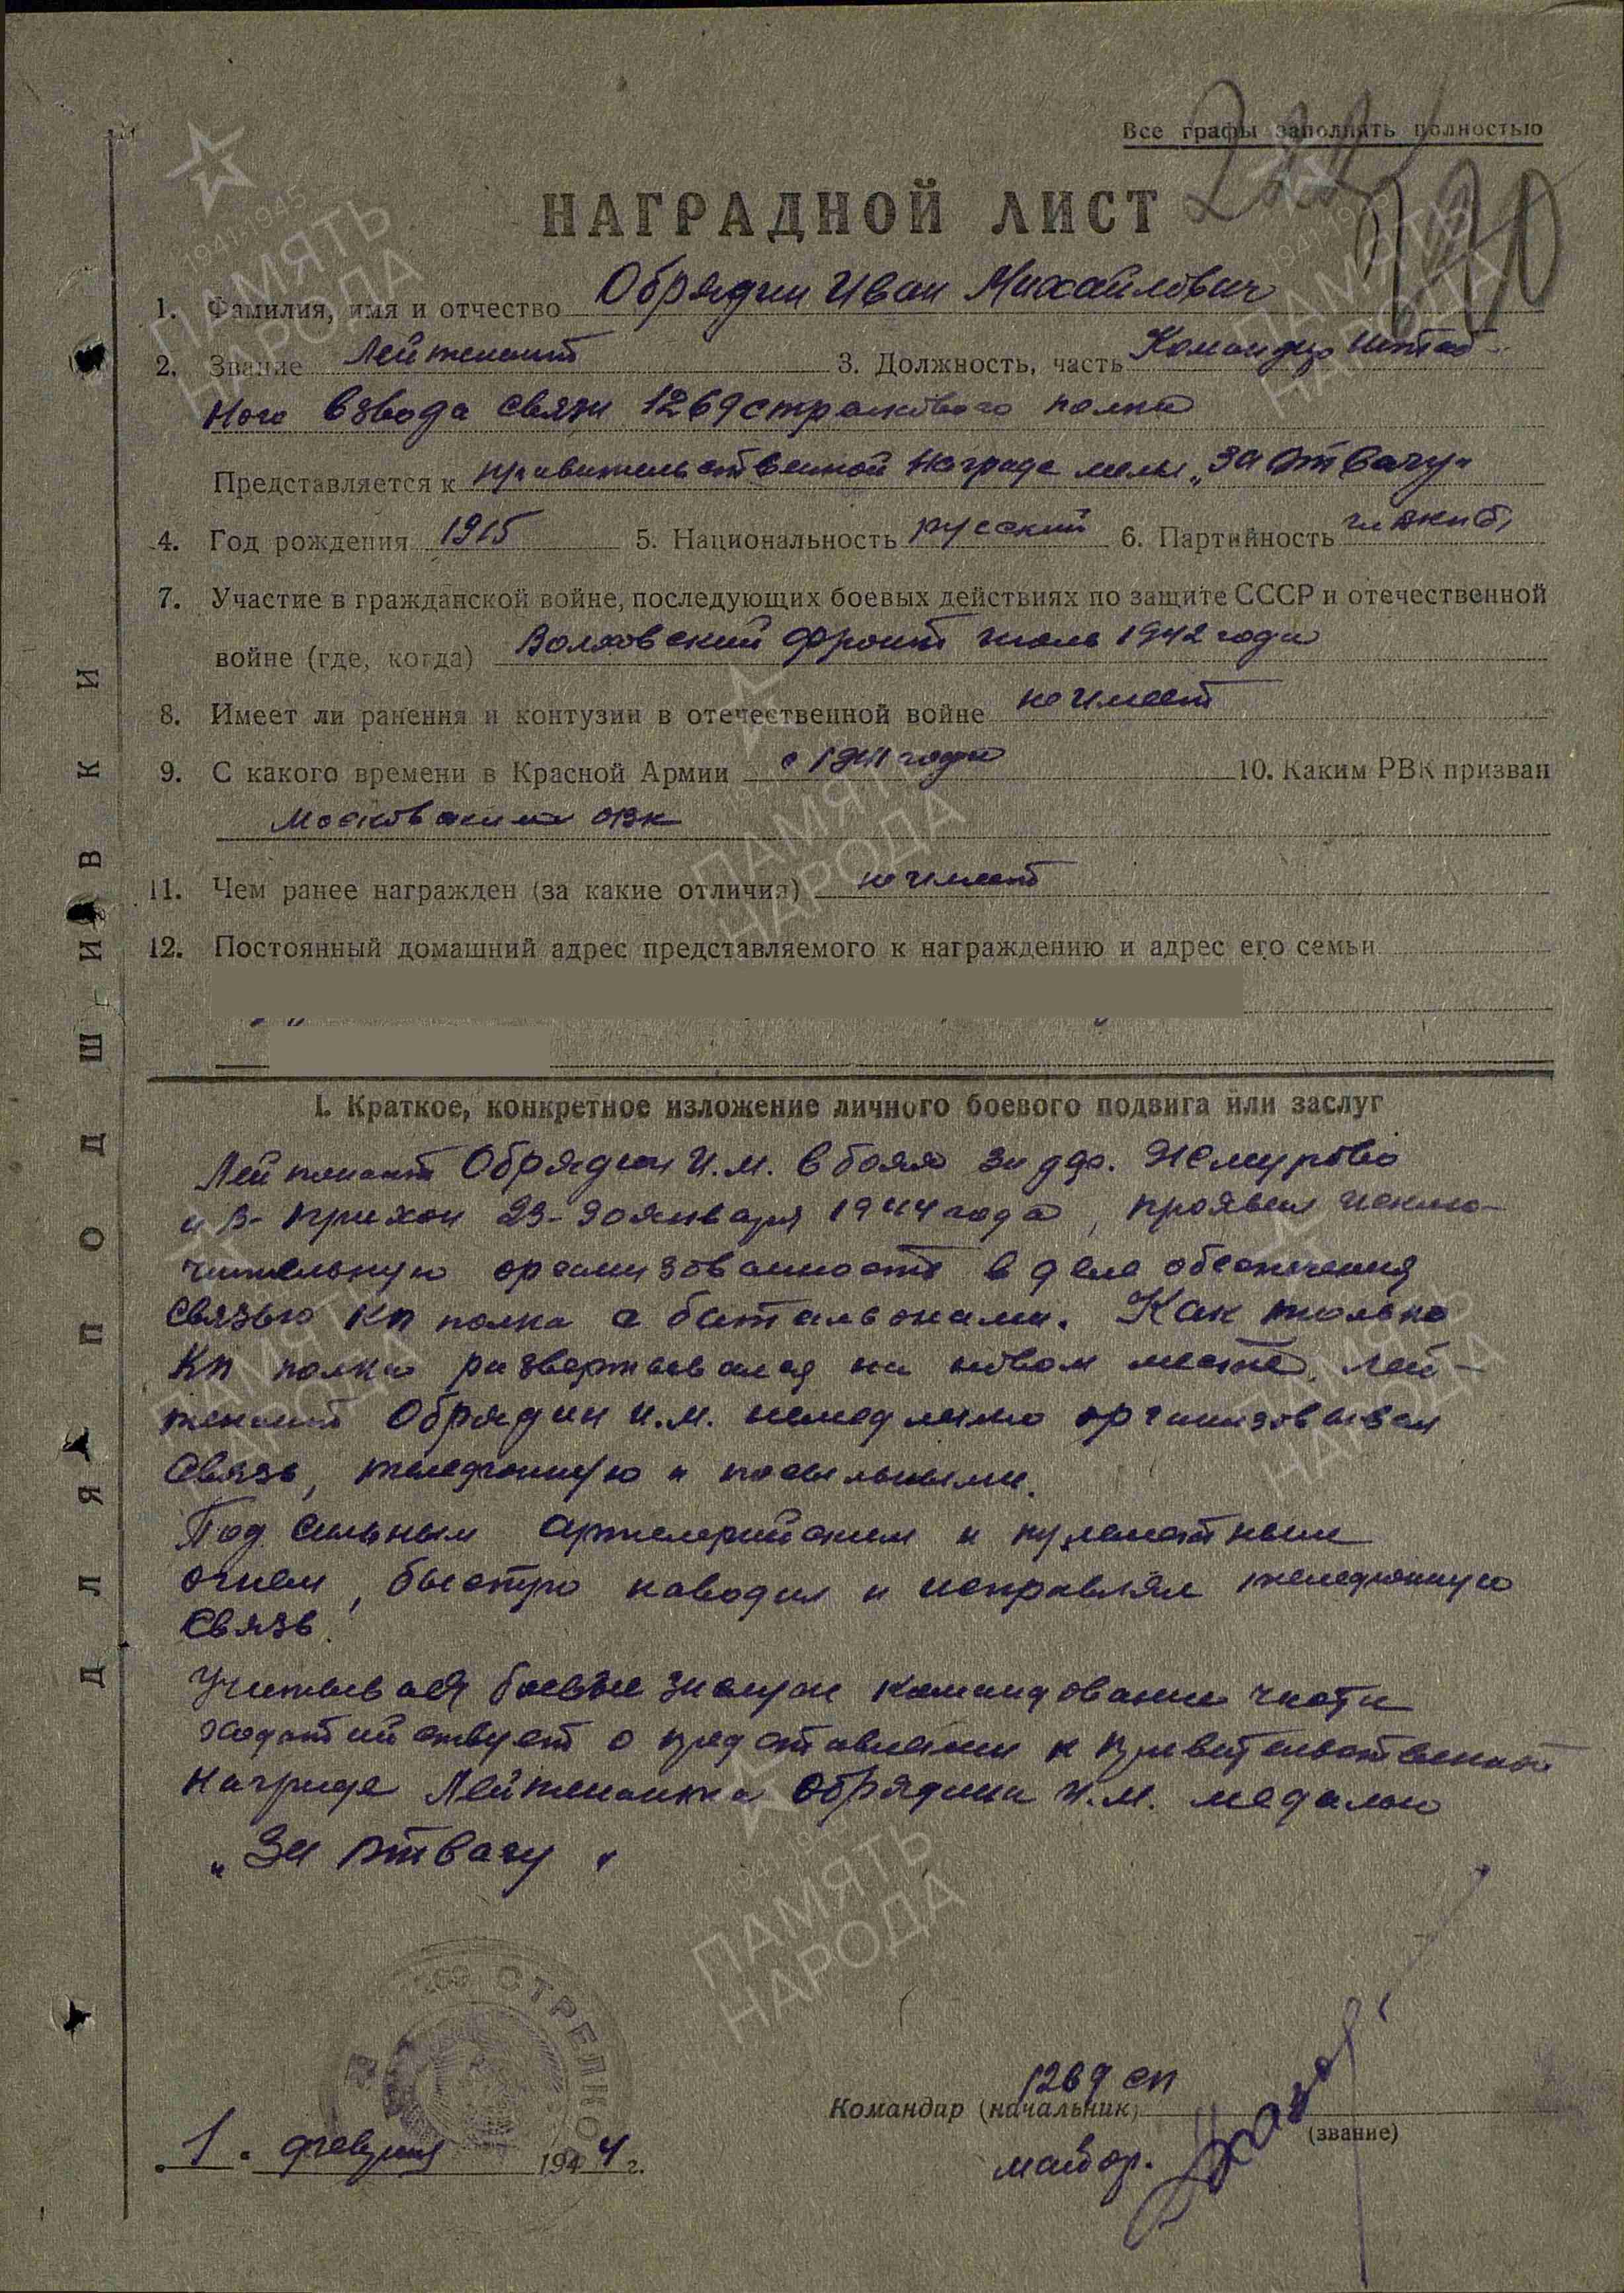 Все графы заполнять полностью
222
НАГРАДНОЙ ЛИСТ
1. Фамилия, имя и отчество Обрядин Иван Михайлович
2. Звание Лейтенант 3. Должность, часть Командир штаб-
ного взвода связи 1269 стрелкового полка
Представляется к правительственной награде медаль „За Отвагу"
4. Год рождения 1915 5. Национальность русский 6. Партийность чл ВКПб,
7. Участие в гражданской войне, последующих боевых действиях по защите СССР и отечественной
войне (где, когда) Волховский фронт июль 1942 года
8. Имеет ли ранения и контузии в отечественной войне не имеет
9. С какого времени в Красной Армии с 1941 года 10. Каким РВК призван
Московским ОВК
11. Чем ранее награжден (за какие отличия) не имеет
12. Постоянный домашний адрес представляемого к награждению и адрес его семьи
I. Краткое, конкретное изложение личного боевого подвига или заслуг
Лейтенант Обрядин И.М. в боях за дер.
и В- Прихон 29-30 января 1944 года, проявил исклю-
чительную организованность в деле обеспечения
связью КП полка с батальонами. Как только
КП полка развертывался на новом месте, лей-
тенант Обрядин И.М. немедленно организовывал
связь, телефонную и посыльными.
Под сильным артилерийским и пулеметным
огнем, быстро наводил и исправлял телефонную
связь.
Учитывая боевые заслуги командование части
ходатайствует о представлении к правительственной
награде Лейтенанта Обрядина И.М. медалью
„За отвагу".
1269 СТРЕЛКО
1269 сп
Командир (начальник)
(звание)
майор.
„1" февраля 1944 г.
ДЛЯ ПОДШИВКИ
1941-1945
ПАМЯТЬ
НАРОДА